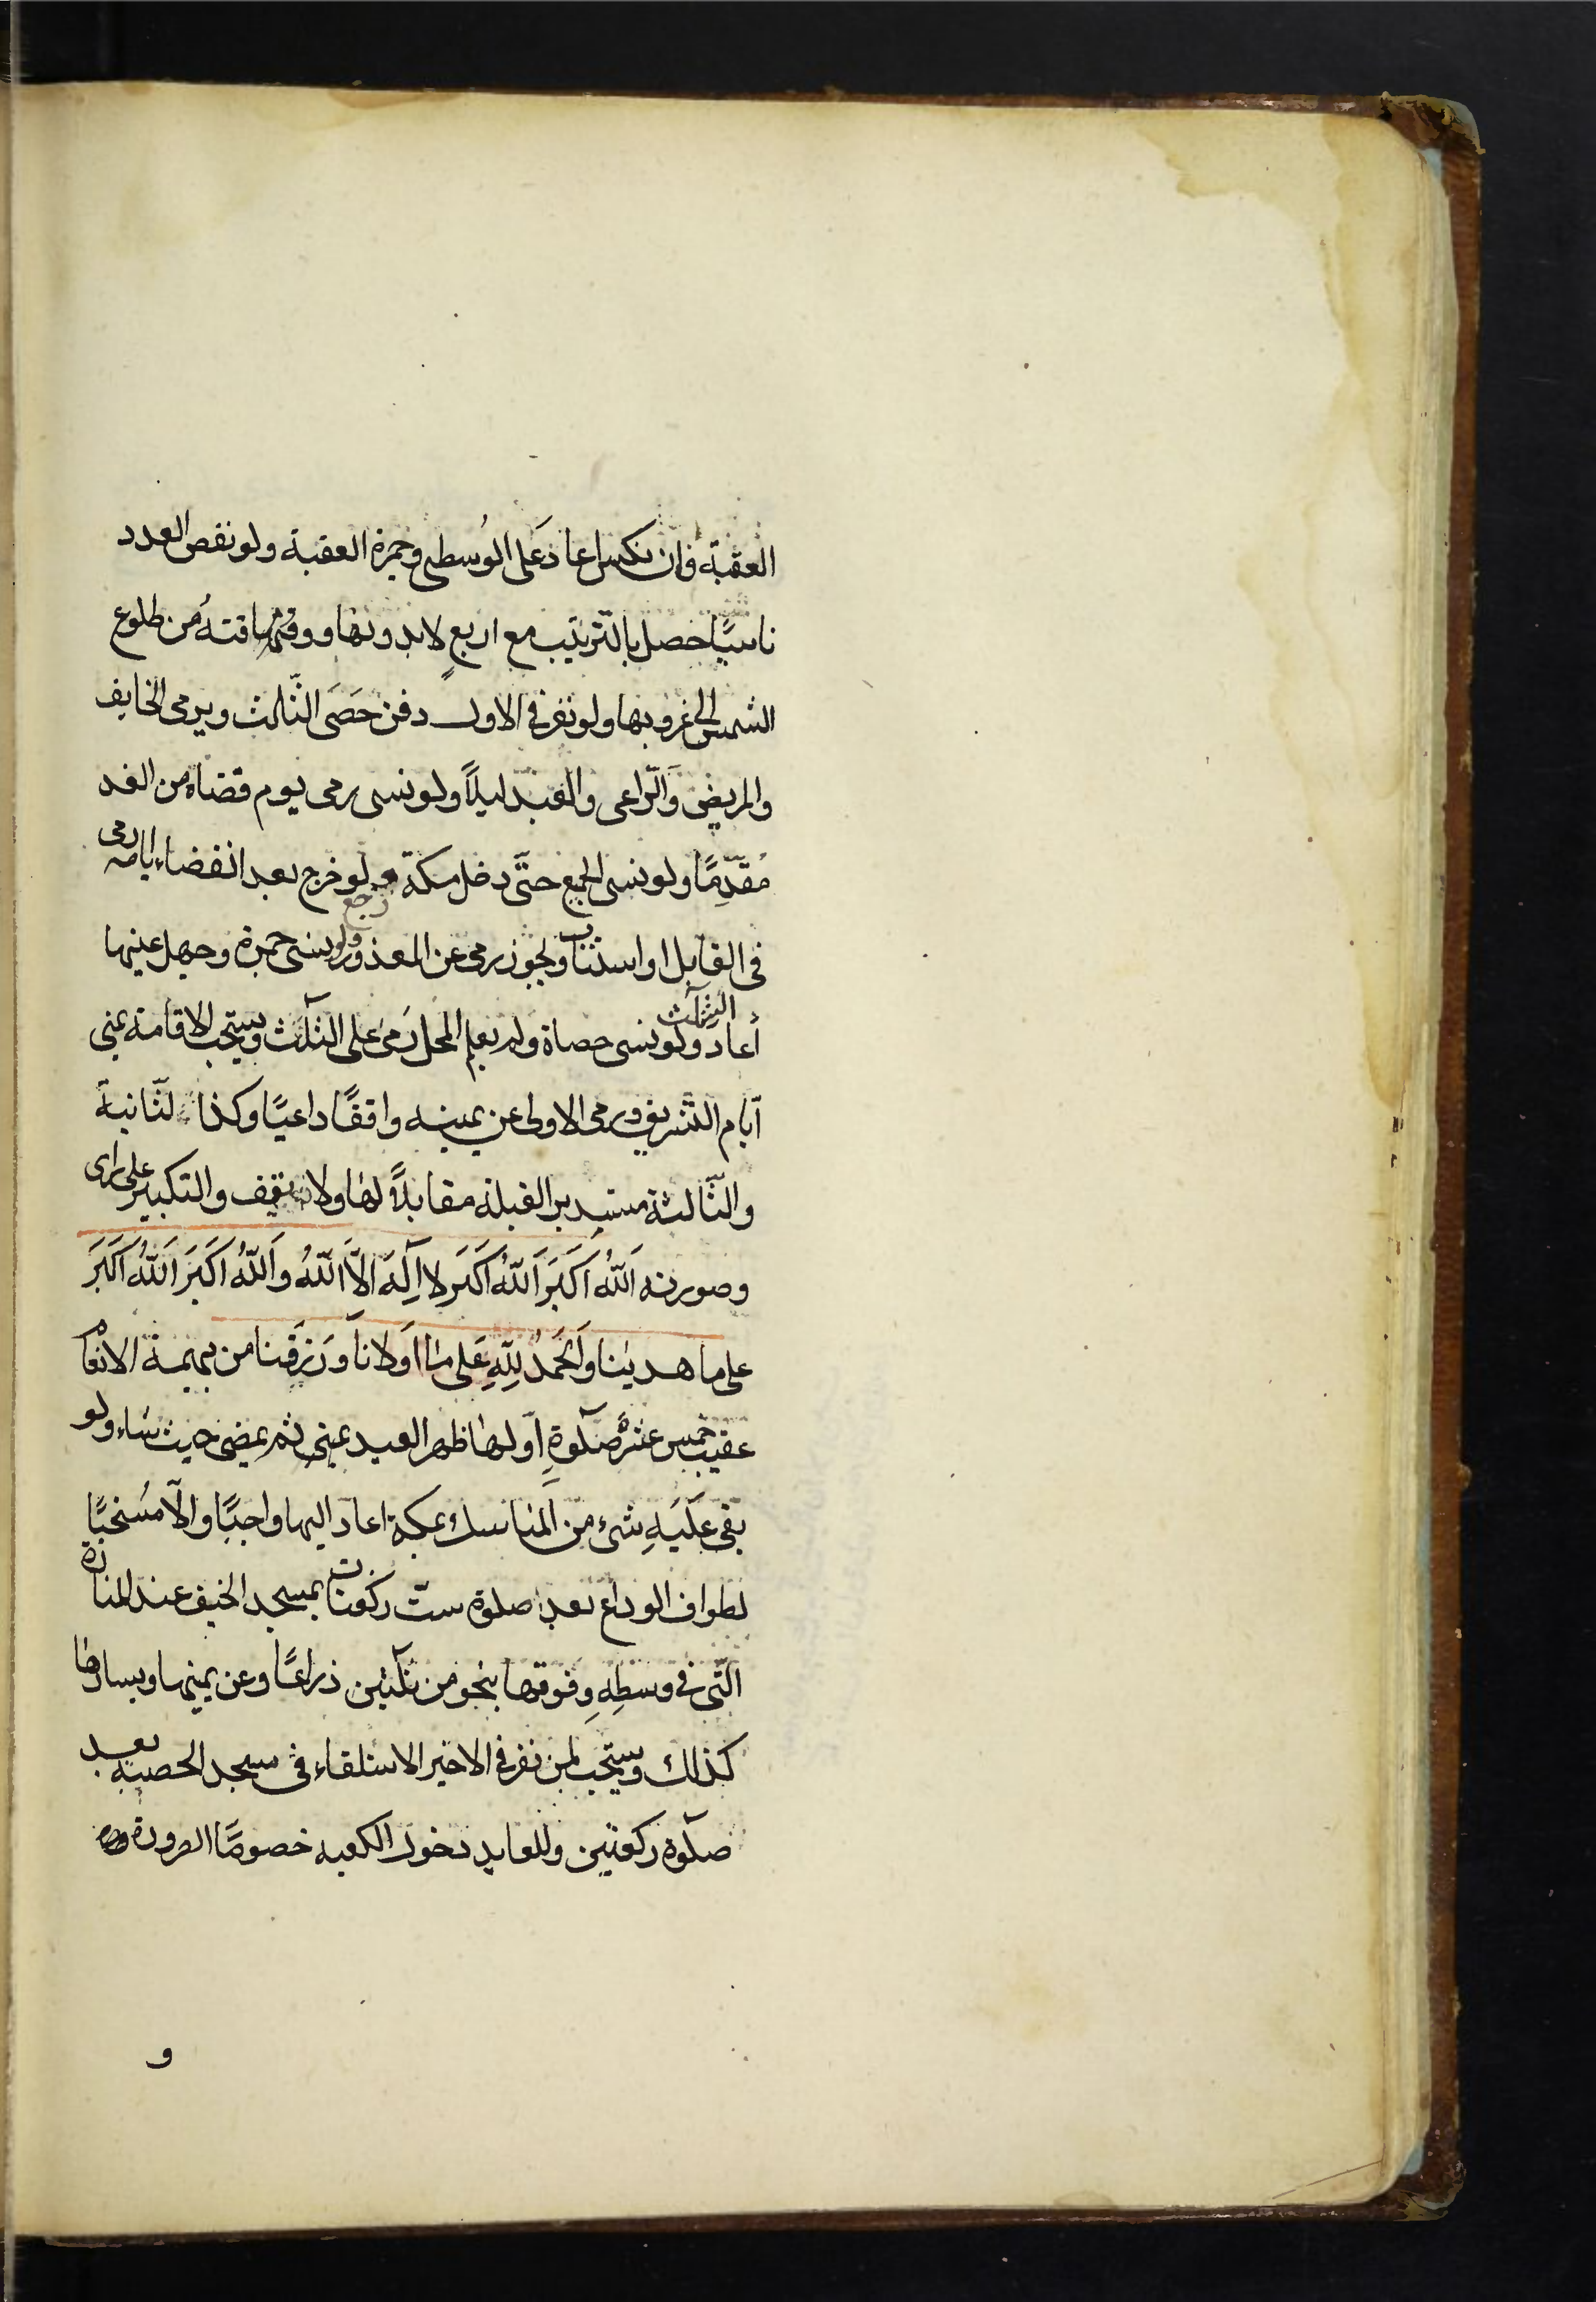 العقبة فان نكس اعاد على الوُسطى وجمرة العقبة ولو نقص العدد
ناسيًا حصل بالتّرتيب مع اربعٍ لابدونها ووقتها من طلوع
الشمس الى غروبها ولو نفر في الاول دفن حَصَى الثّالث ويرمى الخايف
والمريض وَالرّاعى والعبد ليلًا ولو نسى رمى يوم قضاه من الغد
مُقدِّمًا ولو نسى الجميع حتّى دخل مكة رجع ولو خرج بعد انقضاء ايامه رمى
فى القابل او استناب ويجوز رمى عن المعذور ولو نسى جمرة وجهل عينها
أعاد الثلث ولو نسى حصاة ولم يعلم المحل رَمىٰ على الثلٰث ويستحب الاقامة بمنى
أيام التّشريق ورمى الاولى عن يمينه واقفًا داعيًا وكذا الثّانية
والثّالثة مستدبر القبلة مقابلًا لها ولا يقف والتكبير على راى
وصورته اَللّهُ اَكبَرَ اَللّهُ اَكبَر لا اِلٰهَ اِلَّا اللّهُ وَاَللّهُ اَكبَرَ اَللّهُ اَكبَرَ
على ما هدينا وَالحَمدُ لِلّهِ عَلى مٰا اَولانا وَرَزَقَنا من بهيمة الانعام
عقيب خمس عشرة صلٰوةِ اَولها ظهر العيد بمنى ثم يمضى حيث شاء ولو
بقى عَلَيهِ شىء من المَناسك بمكة اعاد اليها واجبًا والّا مُستحبًا
لطواف الوداع بعد صلوة ستّ ركعات بمسجد الخيف عند المنارة
الّتى في وسَطِهِ وفوقها بنحو من ثلٰثين ذراعًا وعن يمينها ويسارها
كذلك ويستحب لمن نفر في الاخير الاستلقاء فى مسجد الحصبه بعد
صلٰوة ركعتين وللعايد دخول الكعبه خصوصًا الصرورة
و